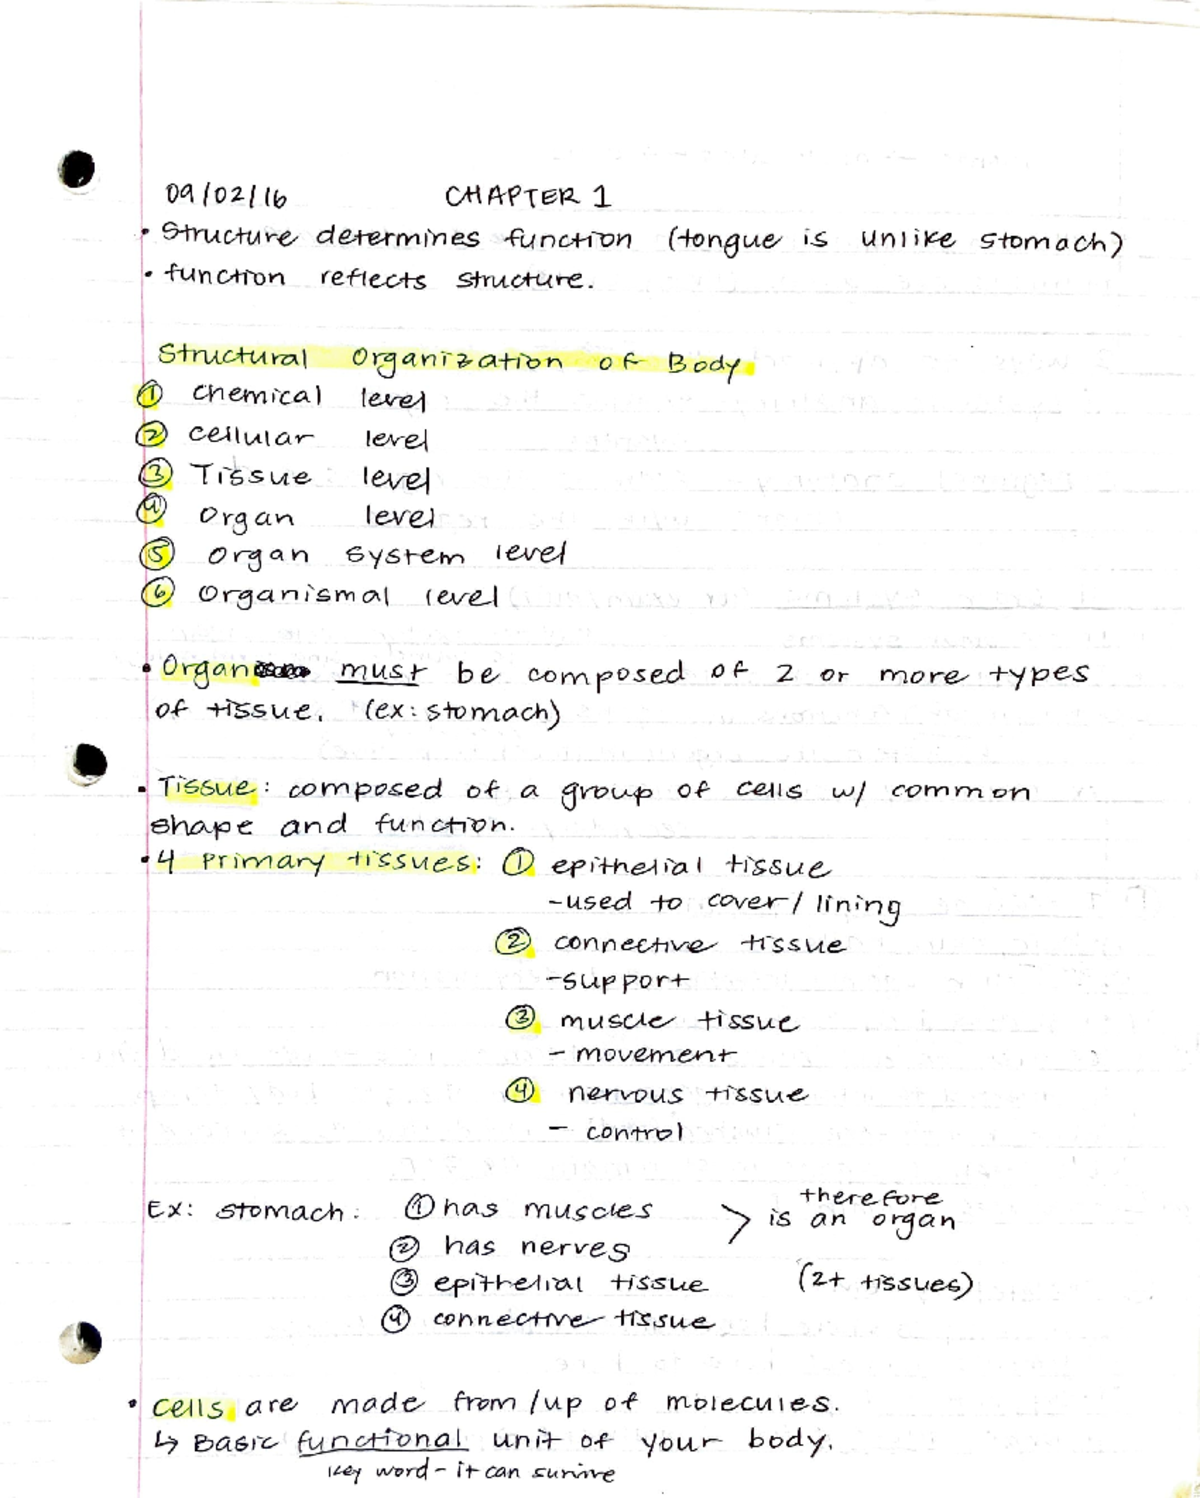 09/02/16 CHAPTER 1
• Structure determines function (tongue is unlike stomach)
• function reflects structure.
Structural Organization of Body
① chemical level
② cellular level
③ Tissue level
④ organ level
⑤ organ system level
⑥ organismal level
• Organ must be composed of 2 or more types
of tissue. (ex: stomach)
• Tissue: composed of a group of cells w/ common
shape and function.
• 4 primary tissues: ① epithelial tissue
-used to cover/lining
② connective tissue
-support
③ muscle tissue
- movement
④ nervous tissue
- control
Ex: stomach: ① has muscles > therefore
is an organ
② has nerves
③ epithelial tissue (2+ tissues)
④ connective tissue
• cells are made from/up of molecules.
↳ Basic functional unit of your body.
key word - it can survive